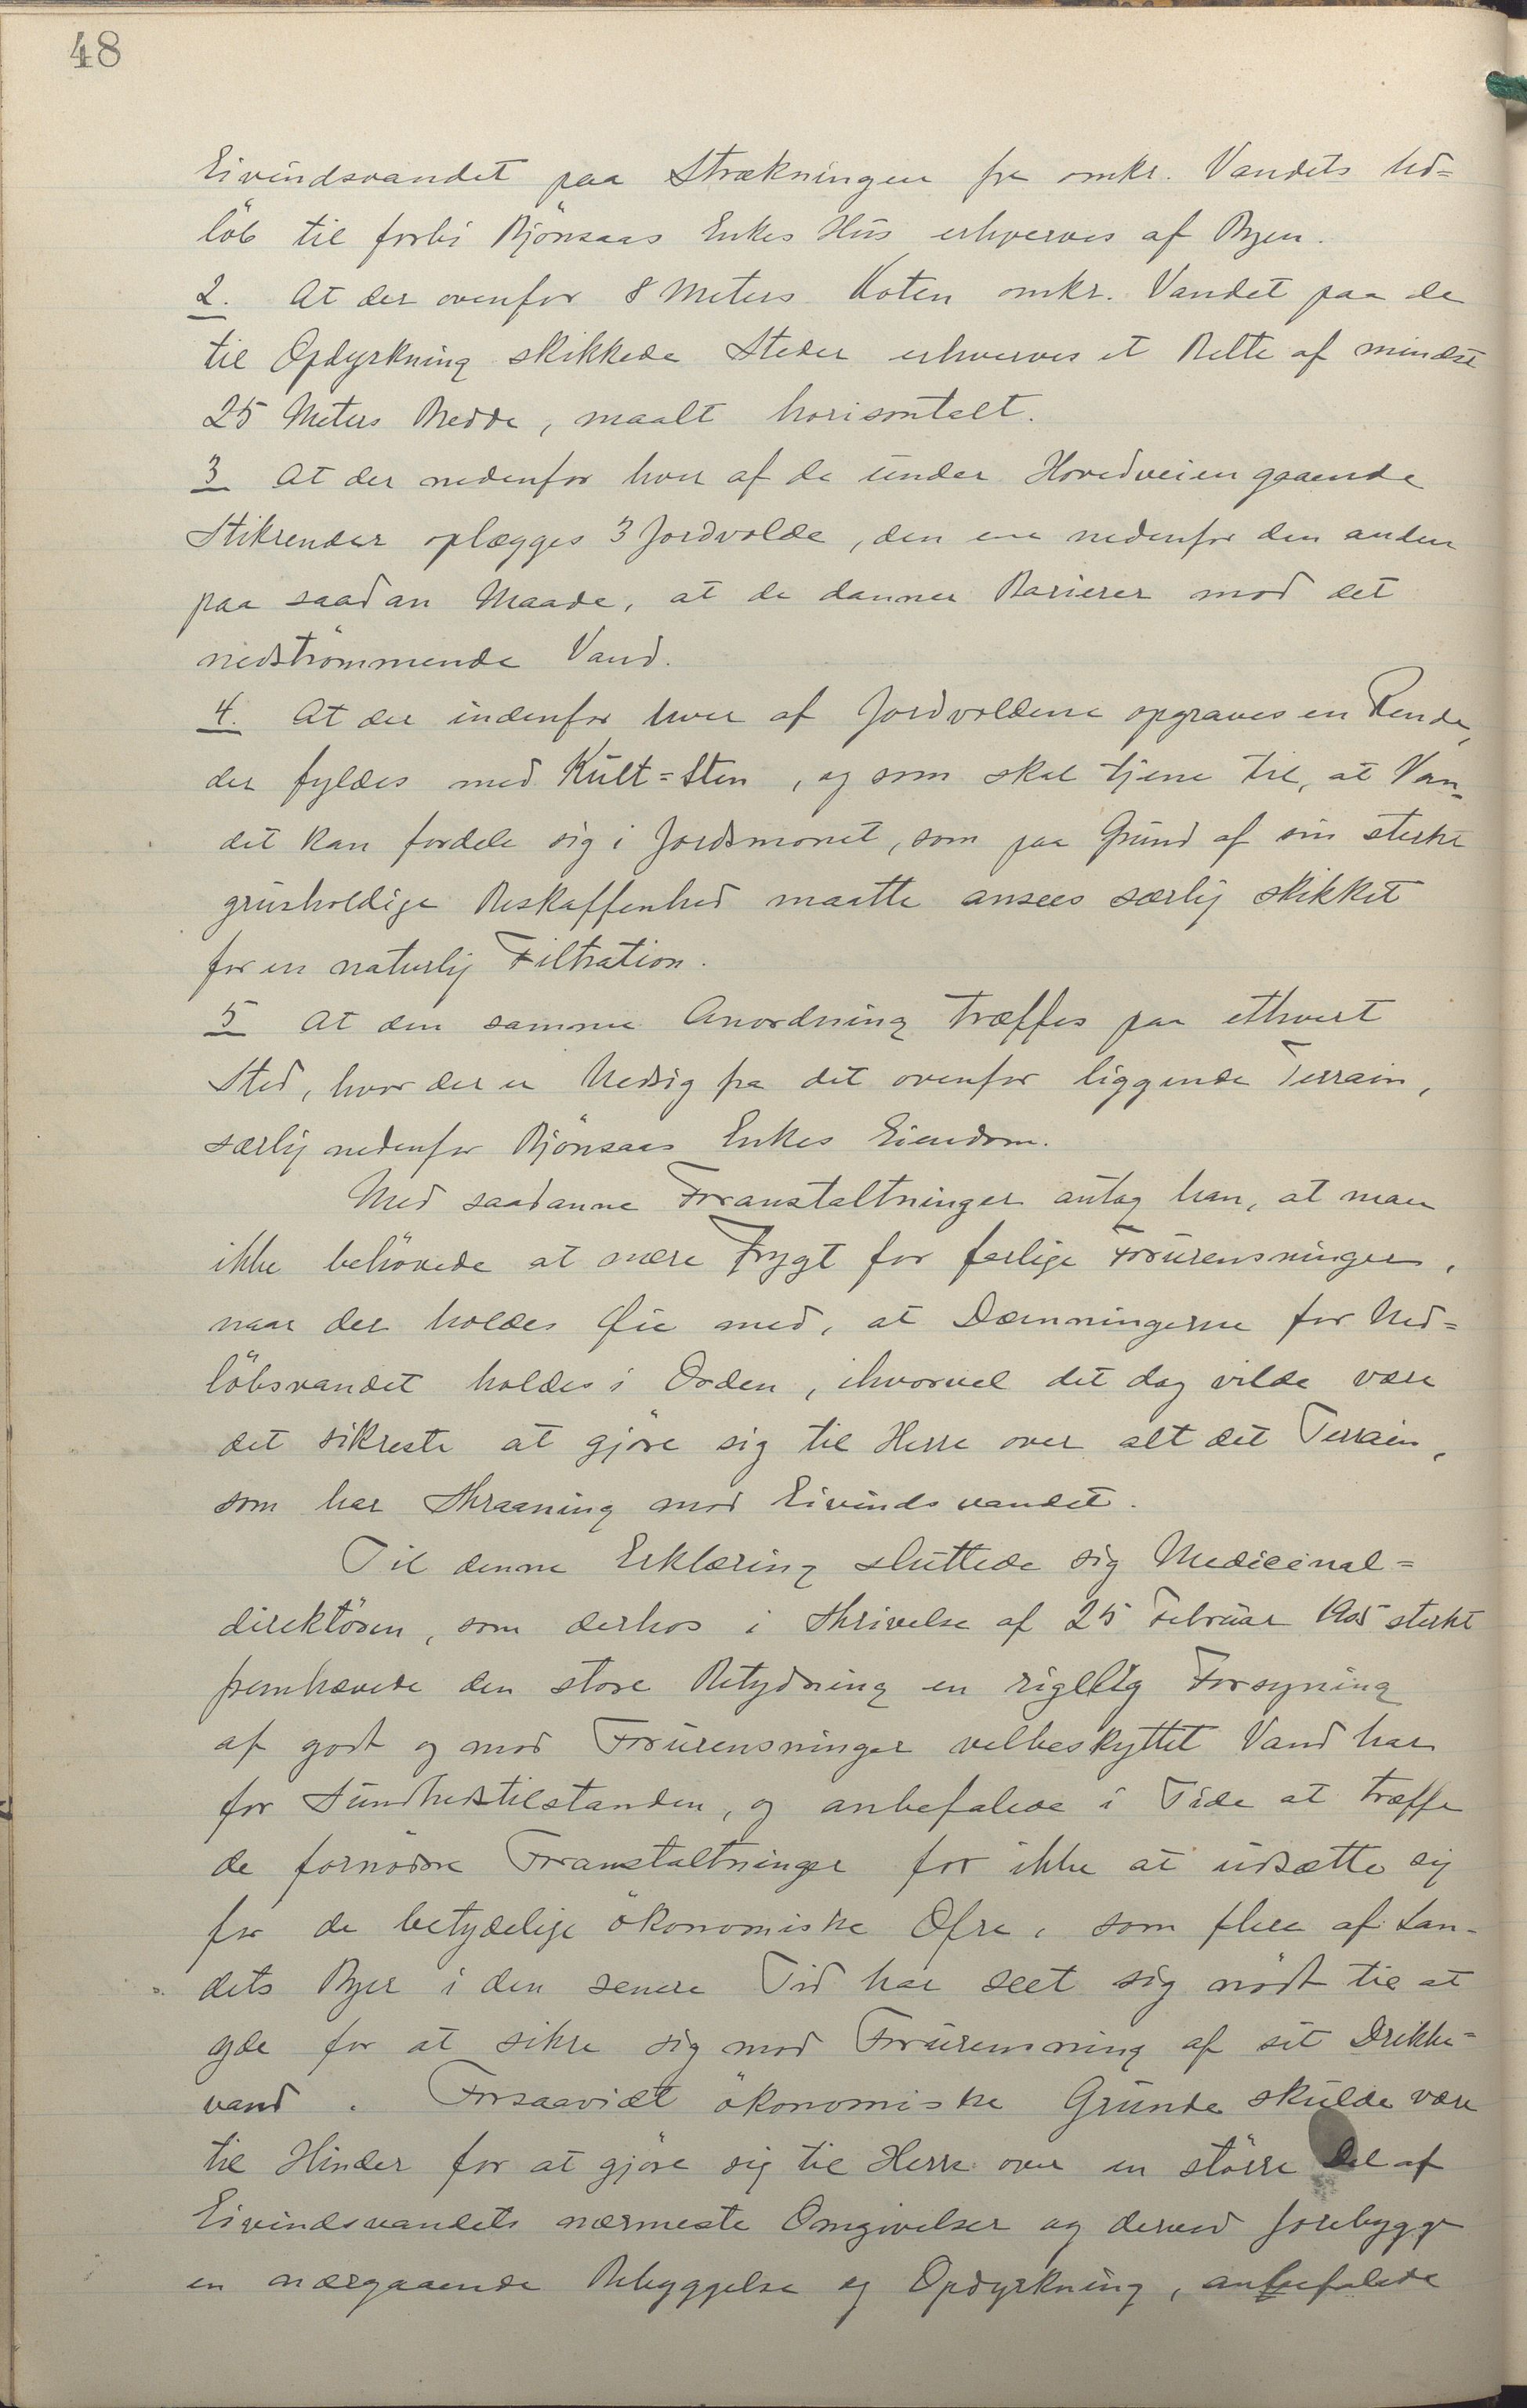 48
Eivindsvandet paa Strækningen fra omkr. Vandets Ud=
löb til forbi Bjönsaas Enkes Hus erhverves af Byen.
2. At der ovenfor 8 Meters Koten omkr. Vandet paa de
til Opdyrkning skikkede Steder erhverves et Belte af mindst
25 Meters Bredde, maalt horisontalt.
3 At der nedenfor hver af de under Hovedveien gaaende
Stikrender oplægges 3 Jordvolde, den ene nedenfor den anden
paa saadan Maade, at de danner Barierer mod det
nedströmmende Vand.
4. At der indenfor hver af Jordvoldene opgraves en Rende,
der fyldes med Kult=Sten, og som skal tjene til, at Van-
det kan fordele sig i Jordsmonet, som paa Grund af sin sterkt
grusholdige Beskaffenhed maatte ansees særlig skikket
for en naturlig Filtration.
5 At den samme Anordning træffes paa ethvert
Sted, hvor der er Nedsig fra det ovenfor liggende Terrain,
særlig nedenfor Bjönsaas Enkes Eiendom.
Med saadanne Foranstaltninger antog han, at man
ikke behövede at nære Frygt for farlige Forurensninger,
naar der holdes Øie med, at Dæmningerne for Ned=
löbsvandet holdes i Orden, ihvorvel det dog vilde være
det sikreste at gjöre sig til Herre over alt det Terrain,
som har Skraaning mod Eivindsvandet.
Til denne Erklæring sluttede sig Medicinal=
direktören, som derhos i Skrivelse af 25 Februar 1905 sterkt
fremhævede den store Betydning en rigelig Forsyning
af godt og mod Forurensninger velbeskyttet Vand har
for Sundhedstilstanden, og anbefalede i Tide at træffe
de fornödne Foranstaltninger for ikke at udsætte sig
for de betydelige ökonomiske Ofre, som flere af Lan-
dets Byer i den senere Tid har seet sig nödt til at
yde for at sikre sig mod Forurensning af sit Drikke=
vand. Forsaavidt ökonomiske Grunde skulde være
til Hinder for at gjöre sig til Herre over en större Del af
Eivindsvandets nærmeste Omgivelser og derved forebygge
en nærgaaende Bebyggelse og Opdyrkning, anbefalede